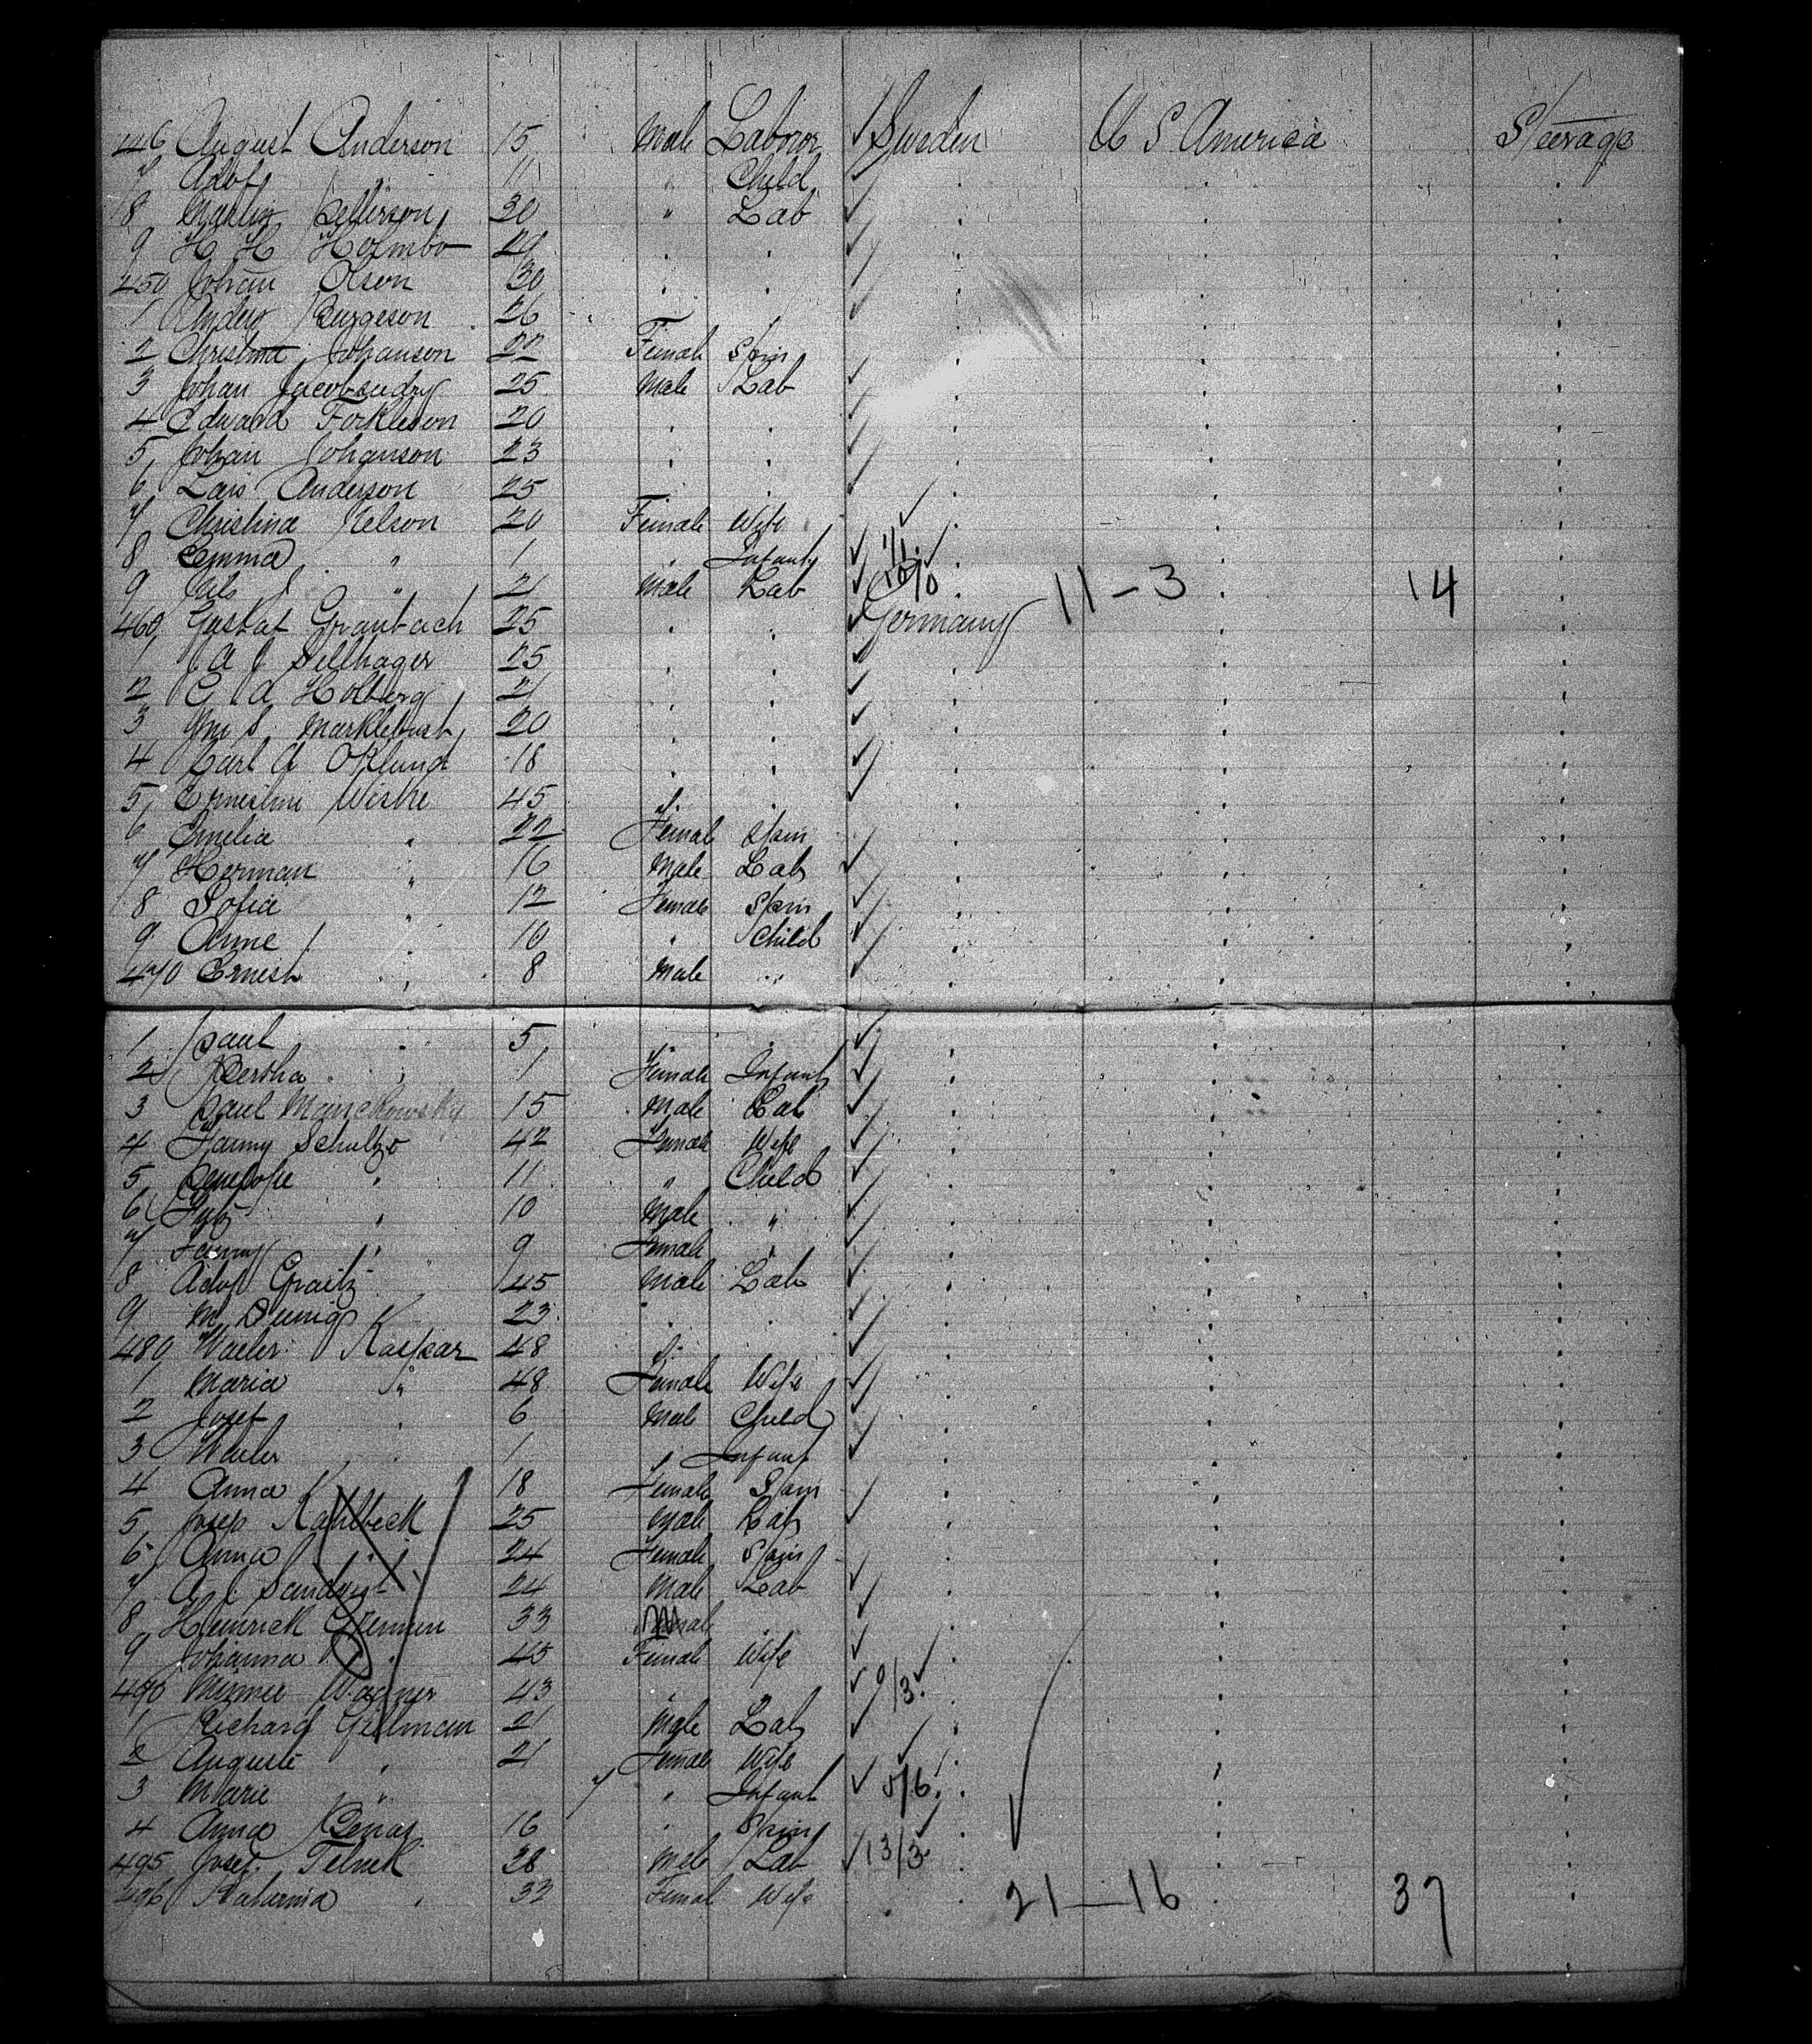 446 August Anderson 15 Male Labour ✓ Sweden U S America Steerage
7 Adof " 11 " Child ✓
8 Martin Petterson 30 " Lab ✓
9 H H Holmbo 29 . . ✓
450 Johan Olson 30 . . ✓
1 Andew Burgeson 26 ✓
2 Christina Johanson 22 Female Spin
3 Johan 25 Male Lab ✓
4 Edward Forkleson 20 . . ✓
5 Johan Johanson 23 . . ✓
6 Lars Anderson 25 . ✓
7 Christina Nelson 20 Female Wife ✓
8 Emma " 1 " Infant ✓ 1/1 ✓
9 Nils " 21 Male Lab ✓ 10/0 11 - 3 14
460 Gustaf Granbach 25 . . ✓ Germany
1 25 . . ✓
2 C A Holberg 21 . . ✓
3 20 . . ✓
4 Carl A Oklund 18 . . ✓
5 Ernestine Wirthe 45 . . ✓
6 Emelia " 22 Female Spin
7 Herman " 16 Male Lab ✓
8 Sofia " 12 Female Spin ✓
9 Anne " 10 " Child ✓
470 Ernest " 8 Male " ✓
1 Paul " 5 " . ✓
2 Bertha " 1 Female Infant ✓
3 Paul Mainckowsky 15 Male Lab ✓
4 Fanny Schultze 42 Female Wife ✓
5 Penelope " 11 " Child ✓
6 " 10 Male " ✓
7 Fanny " 9 Female " ✓
8 Adof Graitz 45 Male Lab ✓
9 M 23 . . ✓
480 Kaspar 48 . ✓
1 Maria " 48 Female Wife ✓
2 Josef " 6 Male Child ✓
3 " 1 " Infant ✓
4 Anna 18 Female Spin
5 Josep Kahlbeck 25 Male Lab ✓
6 Anna " 24 Female Spin
7 A 24 Male Lab ✓
8 Heinrick 33 M . ✓
9 Johanna " 45 Female Wife ✓
490 Minnie Wagner 43 " ✓ 0/3 ✓
1 Richard Gillman 21 Male Lab ✓
2 Auguste " 21 Female Wife ✓
3 Marie " 7 " Infant ✓ 5/6
4 Anna 16 " Spin ✓
495 Josef Telnek 38 Male Lab ✓ 13/3
496 Kaharina " 32 Female Wife 21 — 16 37